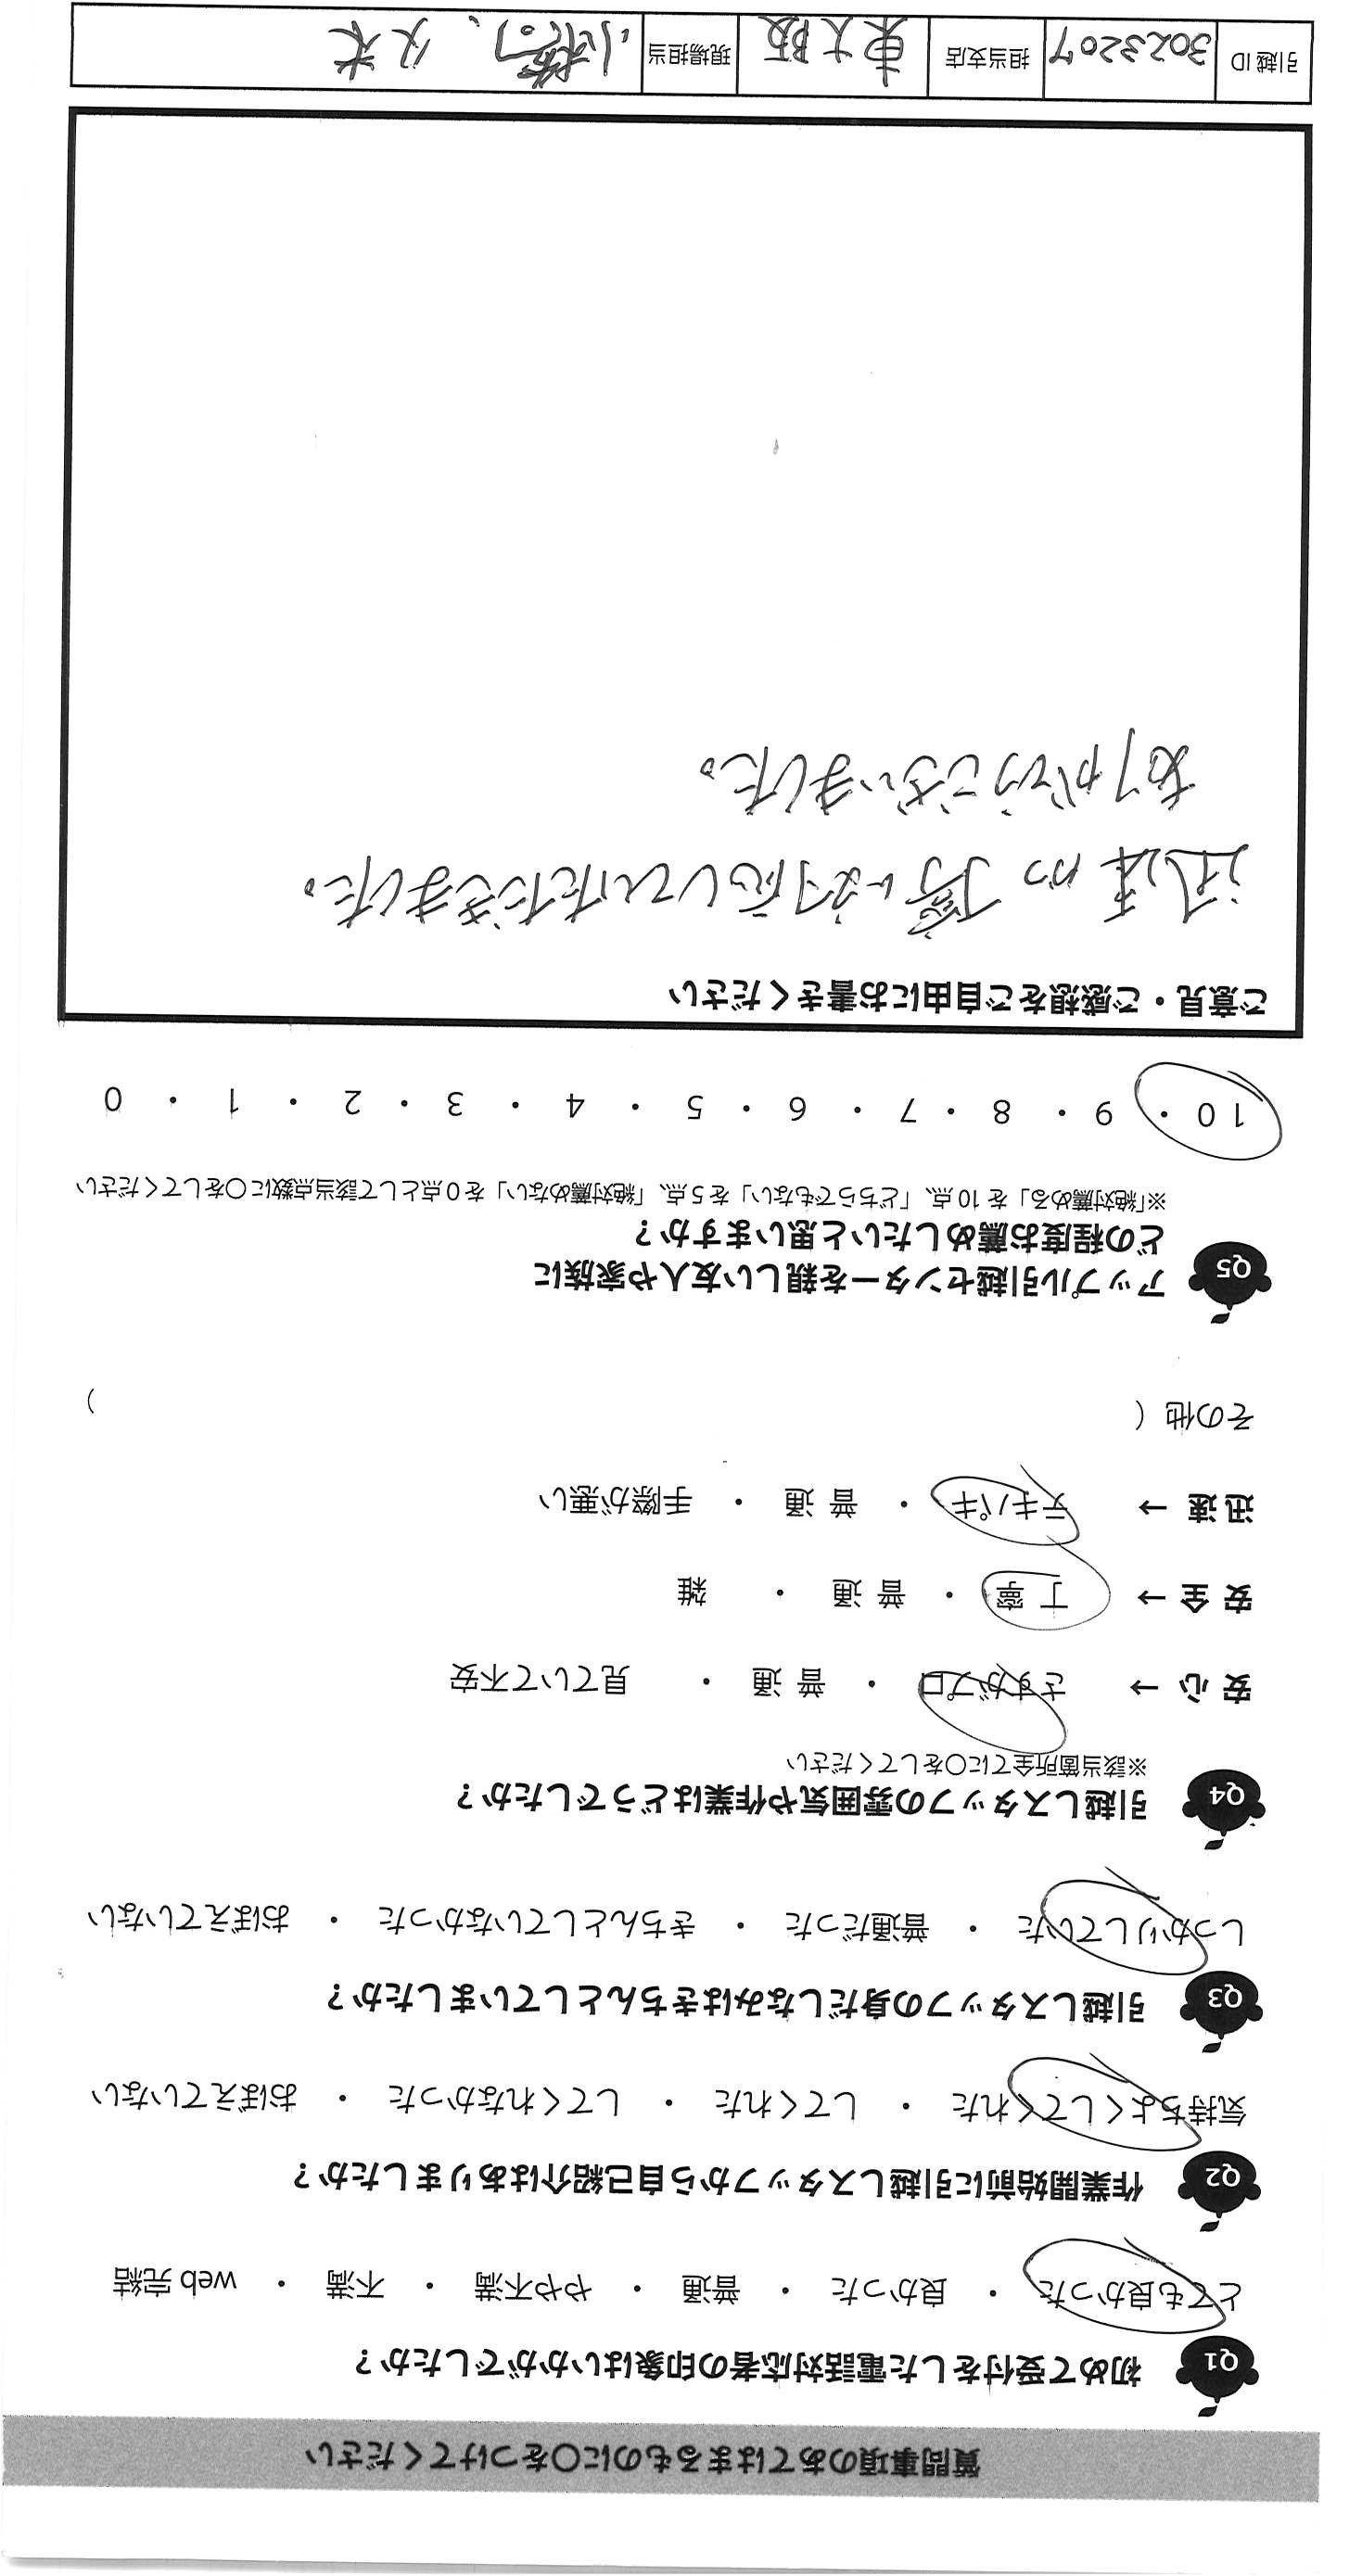 質問事項のあてはまるものに〇をつけてください
Q1 初めて受付をした電話対応者の印象はいかがでしたか？
とても良かった ・ 良かった ・ 普通 ・ やや不満 ・ 不満 ・ web 完結
Q2 作業開始前に引越しスタッフから自己紹介はありましたか？
気持ちよくしてくれた ・ してくれた ・ してくれなかった ・ おぼえていない
Q3 引越しスタッフの身だしなみはきちんとしていましたか？
しっかりしていた ・ 普通だった ・ きちんとしていなかった ・ おぼえていない
Q4 引越しスタッフの雰囲気や作業はどうでしたか？
※該当箇所全てに〇をしてください
安 心 → さすがプロ ・ 普 通 ・ 見ていて不安
安 全 → 丁 寧 ・ 普 通 ・ 雑
迅 速 → テキパキ ・ 普 通 ・ 手際が悪い
その他（ ）
Q5 アップル引越センターを親しい友人や家族に
どの程度お薦めしたいと思いますか？
※「絶対薦める」を 10 点、「どちらでもない」を 5 点、「絶対薦めない」を 0 点として該当点数に〇をしてください
10 ・ 9 ・ 8 ・ 7 ・ 6 ・ 5 ・ 4 ・ 3 ・ 2 ・ 1 ・ 0
ご意見・ご感想をご自由にお書きください
迅速かつ丁寧に対応していただきました。
ありがとうございました。
引越 ID 3023207 担当支店 東大阪 現場担当 小橋口、久木